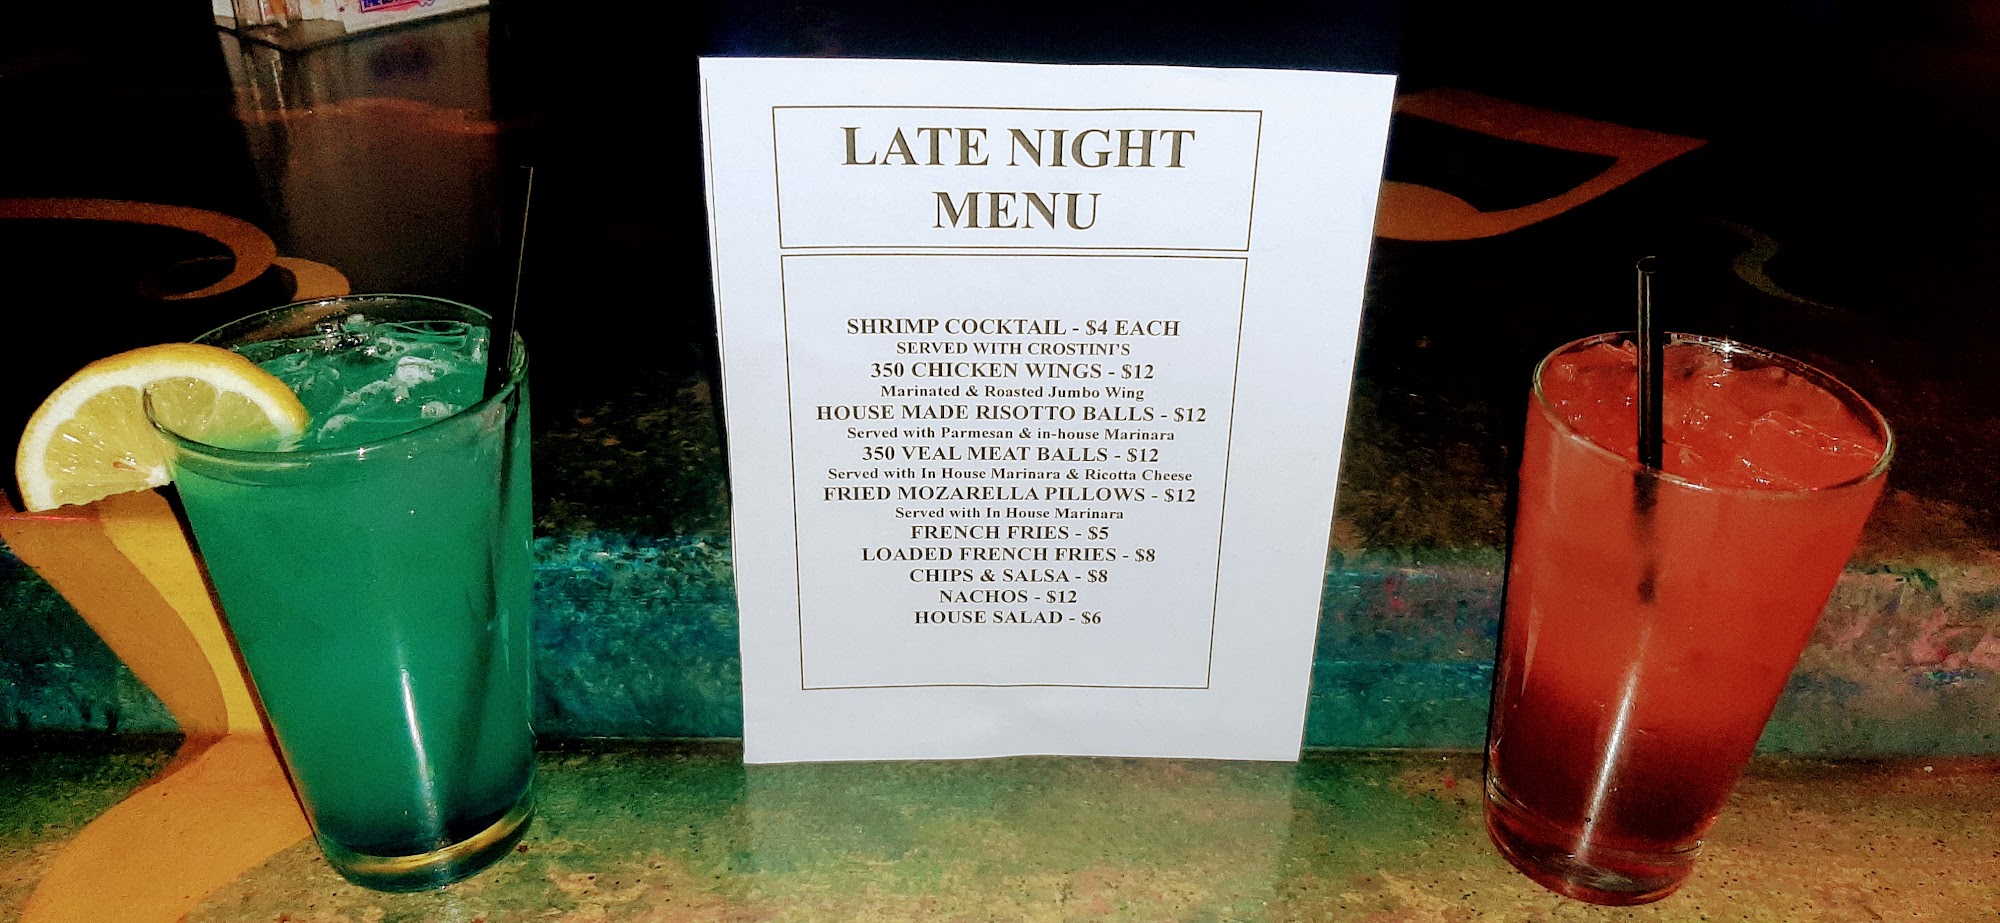 LATE NIGHT
MENU
SHRIMP COCKTAIL - $4 EACH
SERVED WITH CROSTINI'S
350 CHICKEN WINGS - $12
Marinated & Roasted Jumbo Wing
HOUSE MADE RISOTTO BALLS - $12
Served with Parmesan & in-house Marinara
350 VEAL MEAT BALLS - $12
Served with In House Marinara & Ricotta Cheese
FRIED MOZARELLA PILLOWS - $12
Served with In House Marinara
FRENCH FRIES - $5
LOADED FRENCH FRIES - $8
CHIPS & SALSA - $8
NACHOS - $12
HOUSE SALAD - $6